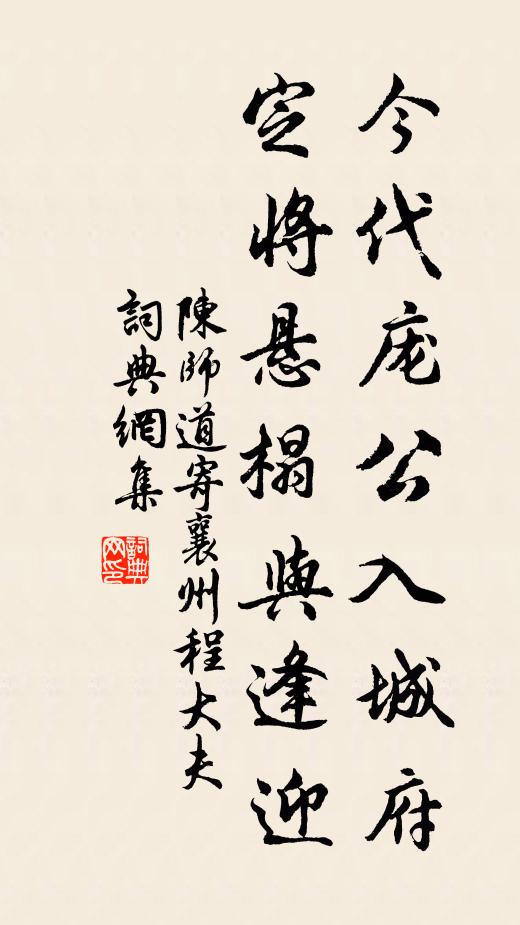 今代庞公入城府
定将悬榻與逢迎
陳師道寄襄州程大夫
詞典網集
詞典網印